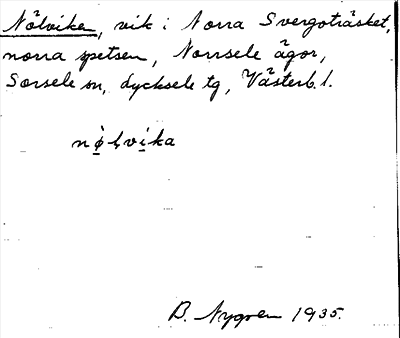 Nölviken, vik i Norra Svergoträsket,
norra spetsen, Norrsele ägor,
Sorsele sn, Lycksele tg, Västerb. l.
nø̀ḷvìka
B. Nygren 1935.